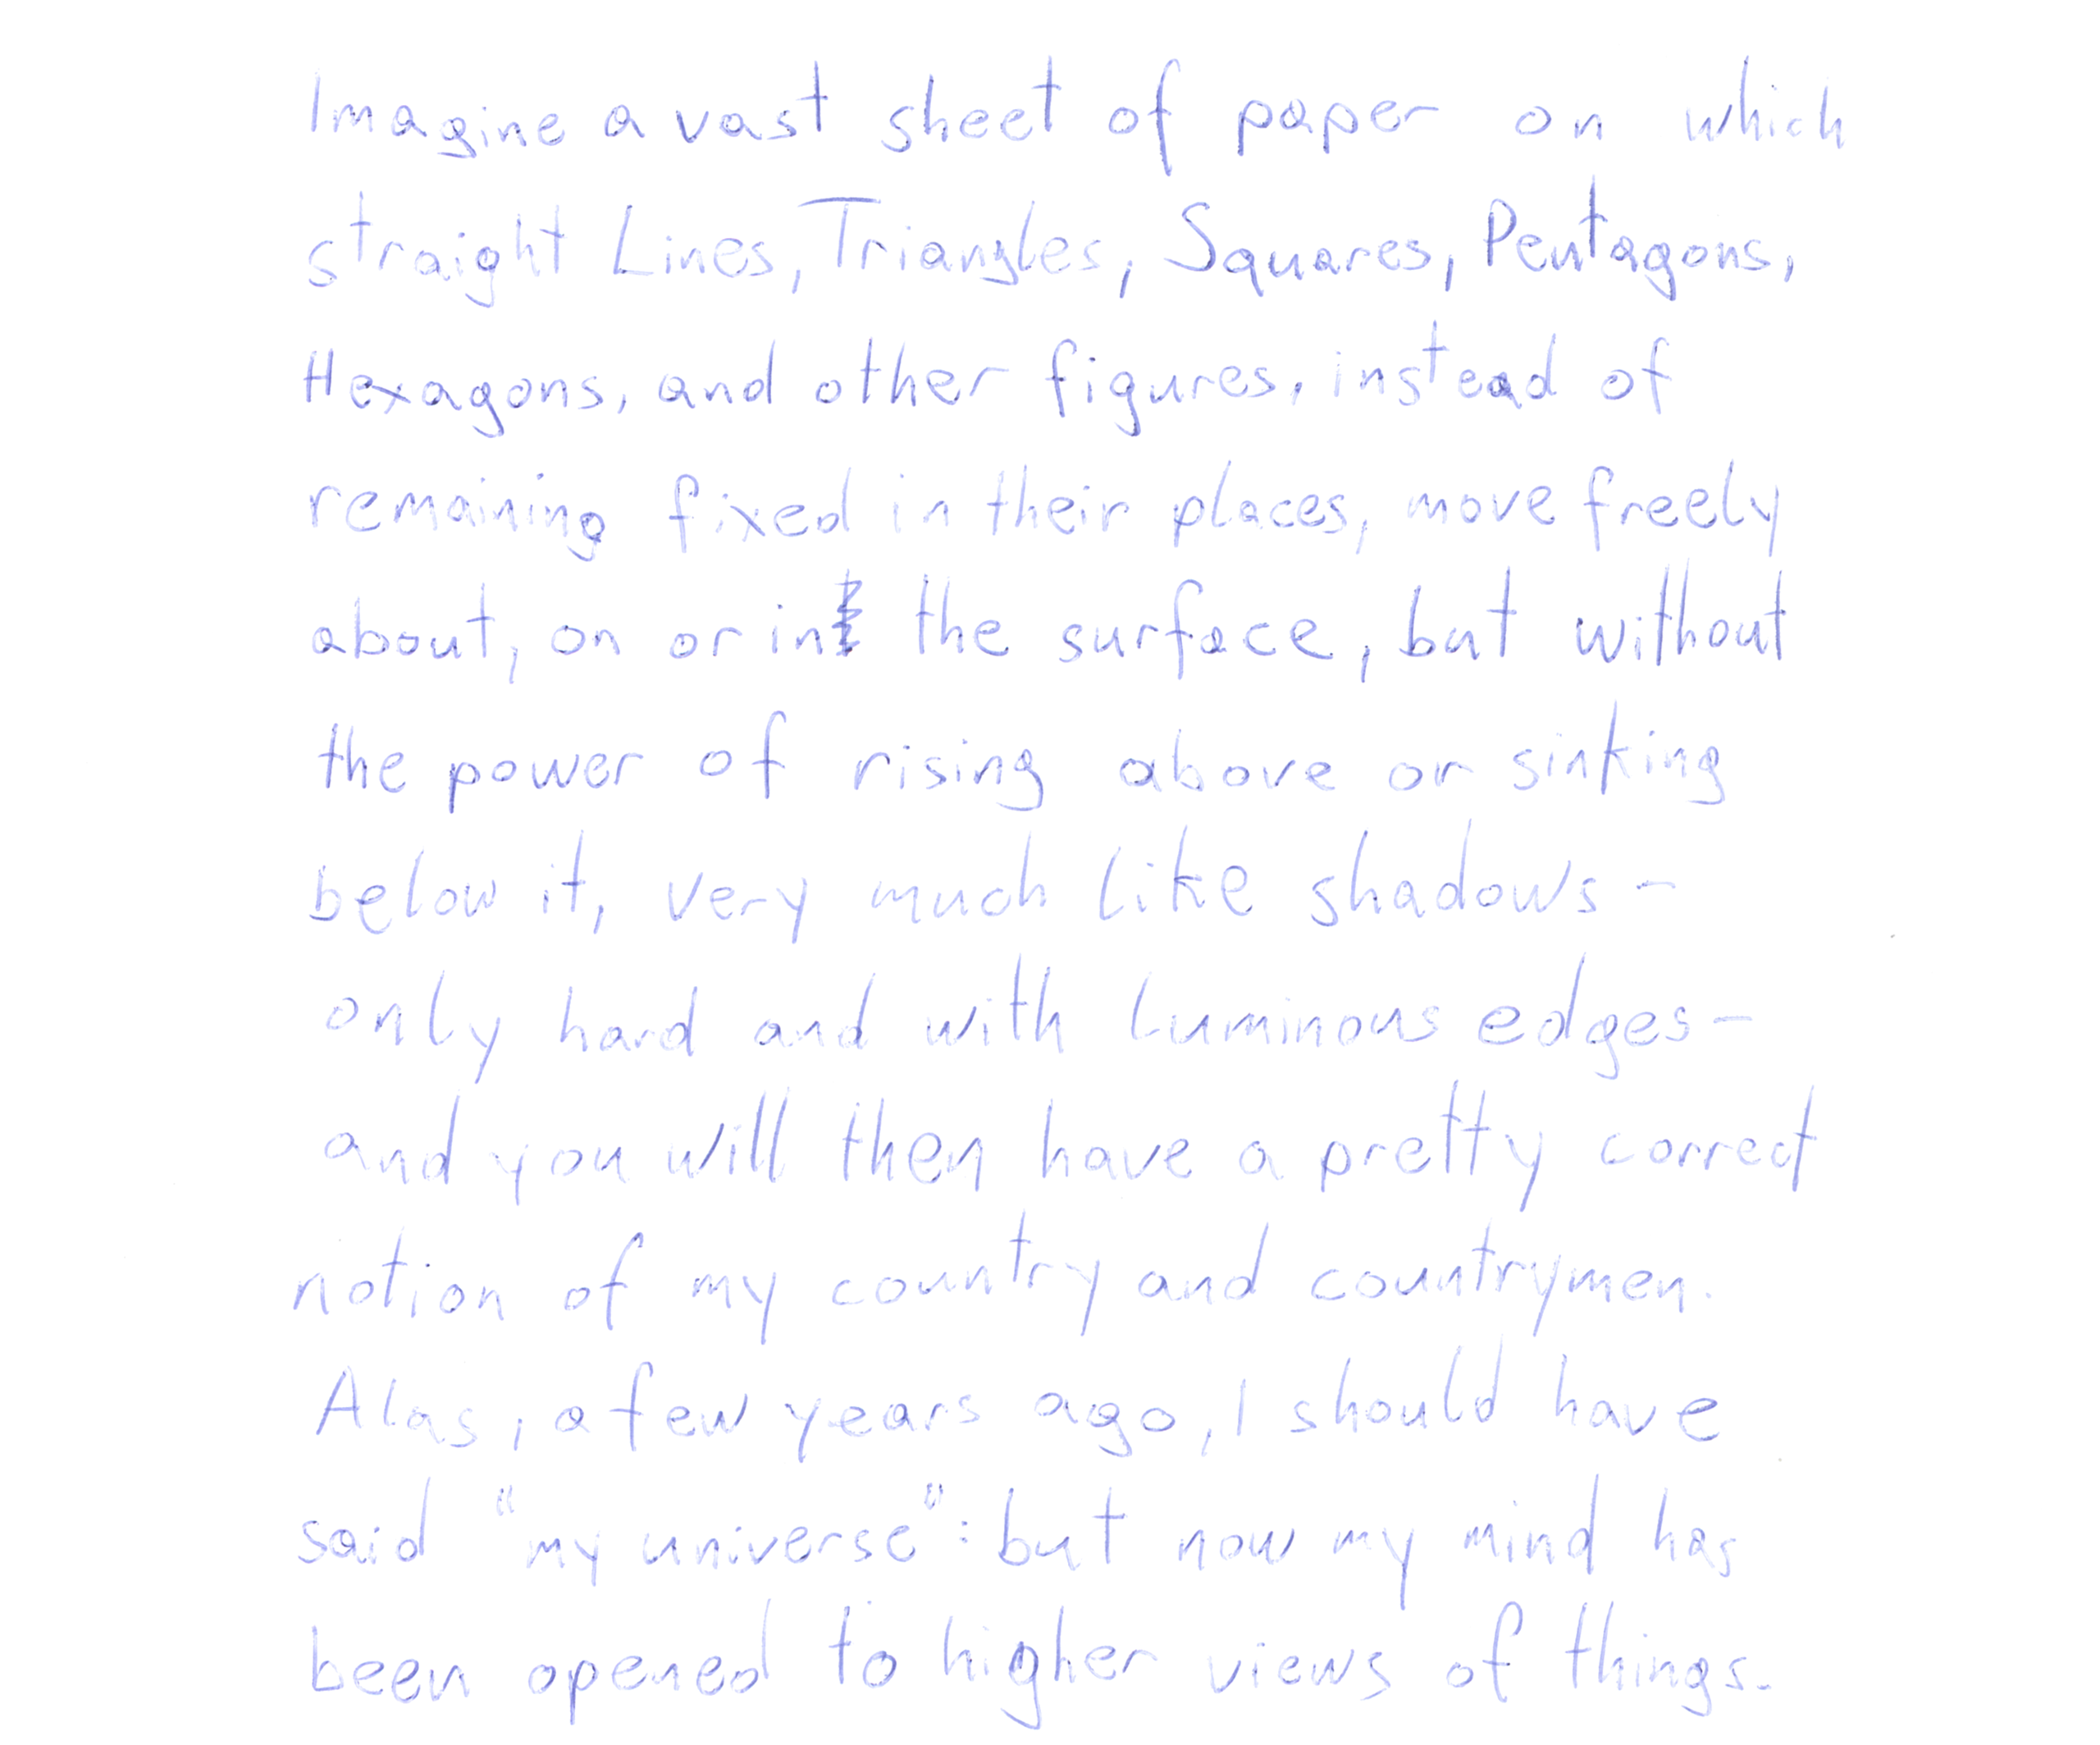 Imagine a vast sheet of paper on which
straight Lines, Triangles, Squares, Pentagons,
Hexagons, and other figures, instead of
remaining fixed in their places, move freely
about, on or in the surface, but without
the power of rising above or sinking
below it, very much like shadows -
only hard and with luminous edges -
and you will then have a pretty correct
notion of my country and countrymen.
Alas, a few years ago, I should have
said "my universe": but now my mind has
been opened to higher views of things.